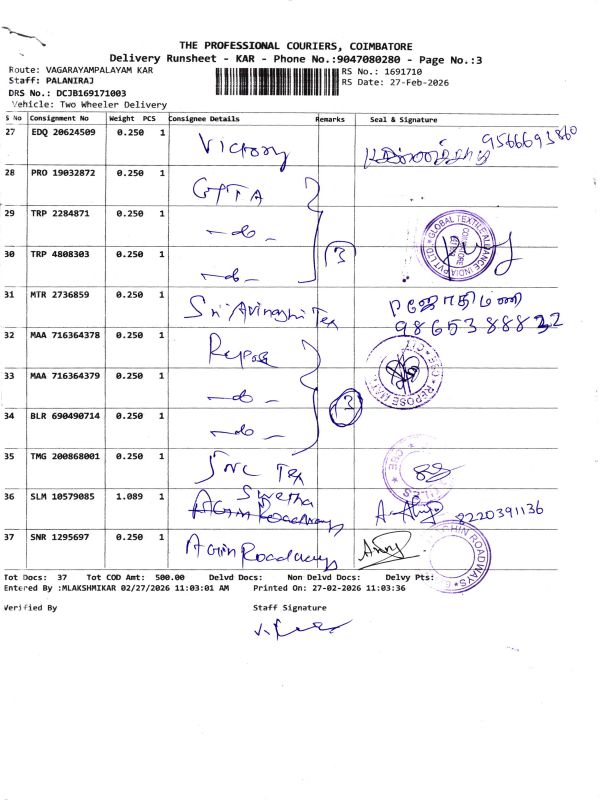 THE PROFESSIONAL COURIERS, COIMBATORE
Delivery Runsheet - KAR - Phone No.:9047080280 - Page No.:3
Route: VAGARAYAMPALAYAM KAR
Staff: PALANIRAJ
DRS No.: DCJB169171003
Vehicle: Two Wheeler Delivery
RS No.: 1691710
RS Date: 27-Feb-2026
S No Consignment No Weight PCS Consignee Details Remarks Seal & Signature
27 EDQ 20624509 0.250 1 Victory 9566693860
28 PRO 19032872 0.250 1 GTTA
29 TRP 2284871 0.250 1 -do-
30 TRP 4808303 0.250 1 -do- 3
GLOBAL TEXTILE ALLIANCE INDIA PVT LTD
31 MTR 2736859 0.250 1 Sri Avinashi Tex P ஜோதிமணி
9865388832
32 MAA 716364378 0.250 1 Repose
33 MAA 716364379 0.250 1 -do- 3
34 BLR 690490714 0.250 1 -do-
35 TMG 200868001 0.250 1 SNC Tex
36 SLM 10579085 1.089 1 Swetha 8220391136
37 SNR 1295697 0.250 1 AGIN Roadways
Tot Docs: 37 Tot COD Amt: 500.00 Delvd Docs: Non Delvd Docs: Delvy Pts:
Entered By :MLAKSHMIKAR 02/27/2026 11:03:01 AM Printed On: 27-02-2026 11:03:36
Verified By Staff Signature